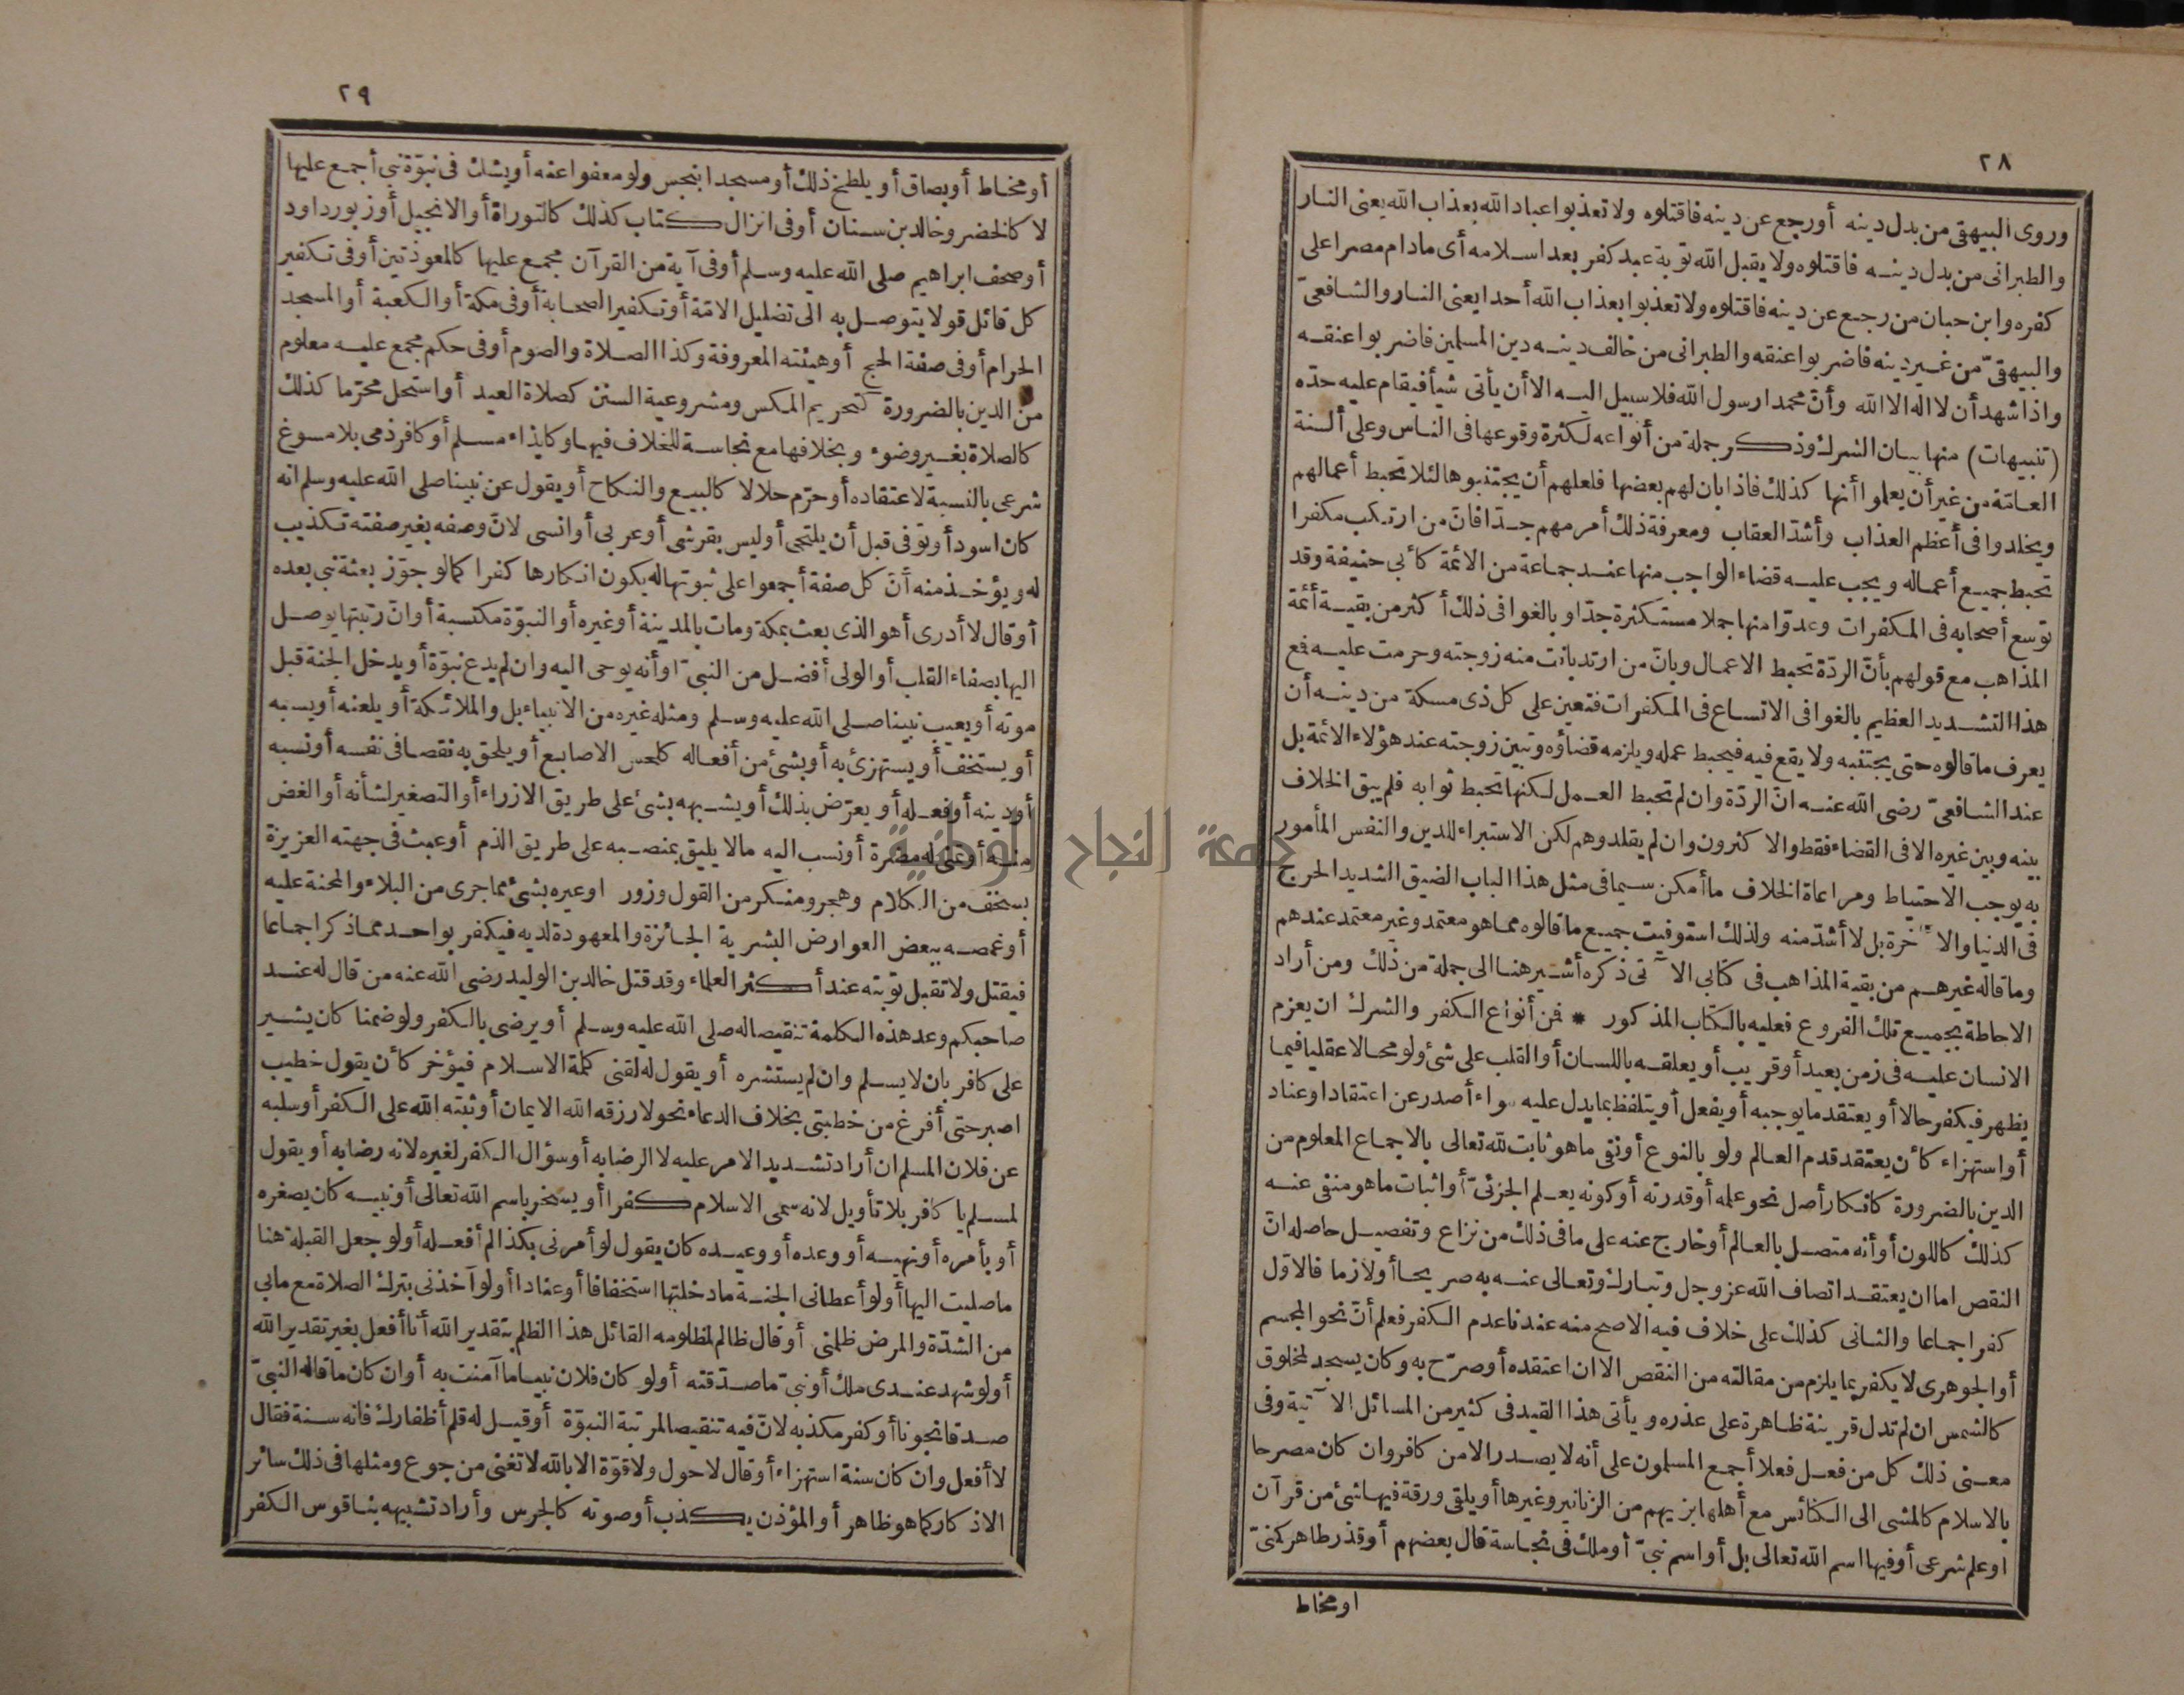 ٢٨
وروى البيهقى من بدل دينه أو رجع عن دينه فاقتلوه ولا تعذبوا عباد الله بعذاب الله يعنى النار
والطبرانى من بدل دينه فاقتلوه ولا يقبل الله توبة عبد كفر بعد اسلامه أى مادام مصرا على
كفره وابن حبان من رجع عن دينه فاقتلوه ولا تعذبوا بعذاب الله أحدا يعنى النار والشافعىّ
والبيهقىّ من غير دينه فاضربوا عنقه والطبرانى من خالف دينه دين المسلمين فاضربوا عنقه
واذا شهد أن لا اله الا الله وأنّ محمدا رسول الله فلا سبيل اليه الا أن يأتى شيأ فيقام عليه حدّه
(تنبيهات) منها بيان الشرك وذكر جملة من أنواعه لكثرة وقوعها فى الناس وعلى ألسنة
العامّة من غير أن يعلموا أنها كذلك فاذا بان لهم بعضها فلعلهم أن يجتنبوها لئلا تحبط أعمالهم
ويخلدوا فى أعظم العذاب وأشدّ العقاب ومعرفة ذلك أمر مهم جدّا فانّ من ارتكب مكفرا
تحبط جميع أعماله ويجب عليه قضاء الواجب منها عند جماعة من الائمة كأبى حنيفة وقد
توسع أصحابه فى المكفرات وعدّوا منها جملا مستكثرة جدّا وبالغوا فى ذلك أكثر من بقية أئمة
المذاهب مع قولهم بأنّ الردّة تحبط الاعمال وبانّ من ارتد بانت منه زوجته وحرمت عليه فمع
هذا التشديد العظيم بالغوا فى الاتساع فى المكفرات فتعين على كل ذى مسكة من دينه أن
يعرف ما قالوه حتى يجتنبه ولا يقع فيه فيحبط عمله ويلزمه قضاؤه وتبين زوجته عند هؤلاء الائمة بل
عند الشافعىّ رضى الله عنه انّ الردّة وان لم تحبط العمل لكنها تحبط ثوابه فلم يبق الخلاف
بينه وبين غيره الا فى القضاء فقط والاكثرون وان لم يقلدوهم لكن الاستبراء للدين والنفس المأمور
به يوجب الاحتياط ومراعاة الخلاف ما أمكن سيما فى مثل هذا الباب الضيق الشديد الحرج
فى الدنيا والآخرة بل لا أشدّ منه ولذلك استوفيت جميع ما قالوه مما هو معتمد وغير معتمد عندهم
وما قاله غيرهم من بقية المذاهب فى كتابى الآتى ذكره أشير هنا الى جملة من ذلك ومن أراد
الاحاطة بجميع تلك الفروع فعليه بالكتاب المذكور * فمن أنواع الكفر والشرك ان يعزم
الانسان عليه فى زمن بعيد أو قريب أو يعلقه باللسان أو القلب على شئ ولو محالا عقليا فيما
يظهر فيكفر حالا أو يعتقد ما يوجبه أو يفعل أو يتلفظ بما يدل عليه سواء أصدر عن اعتقاد أو عناد
أو استهزاء كأن يعتقد قدم العالم ولو بالنوع أو نفى ما هو ثابت لله تعالى بالاجماع المعلوم من
الدين بالضرورة كانكار أصل نحو علمه أو قدرته أو كونه يعلم الجزئىّ أو اثبات ما هو منفى عنه
كذلك كاللون أو أنه متصل بالعالم أو خارج عنه على ما فى ذلك من نزاع وتفصيل حاصله انّ
النقص اما ان يعتقد اتصاف الله عز وجل وتبارك وتعالى عنه به صريحا أو لازما فالاوّل
كفر اجماعا والثانى كذلك على خلاف فيه الاصح منه عندنا عدم الكفر فعلم أنّ نحو المجسم
أو الجوهرى لا يكفر بما يلزم من مقالته من النقص الا ان اعتقده أو صرّح به وكان يسجد لمخلوق
كالشمس ان لم تدل قرينة ظاهرة على عذره ويأتى هذا القيد فى كثير من المسائل الآتية وفى
معنى ذلك كل من فعل فعلا أجمع المسلمون على أنه لا يصدر الا من كافر وان كان مصرحا
بالاسلام كالمشى الى الكنائس مع أهلها بزيهم من الزنانير وغيرها أو يلقى ورقة فيها شئ من قرآن
او علم شرعى أو فيها اسم الله تعالى بل أو اسم نبىّ أو ملك فى نجاسة قال بعضهم أو قذر طاهر كمنىّ
او مخاط
٢٩
أو مخاط أو بصاق أو يلطخ ذلك أو مسجدا بنجس ولو معفوا عنه أو يشك فى نبوّة نبى أجمع عليها
لا كالخضر وخالد بن سنان أو فى انزال كتاب كذلك كالتوراة أو الانجيل أو زبور داود
أو صحف ابراهيم صلى الله عليه وسلم أو فى آية من القرآن مجمع عليها كالمعوذتين أو فى تكفير
كل قائل قولا يتوصل به الى تضليل الامّة أو تكفير الصحابة أو فى مكة أو الكعبة أو المسجد
الحرام أو فى صفة الحج أو هيئته المعروفة وكذا الصلاة والصوم أو فى حكم مجمع عليه معلوم
من الدين بالضرورة كتحريم المكس ومشروعية السنن كصلاة العيد أو استحل محرّما كذلك
كالصلاة بغير وضوء وبخلافها مع نجاسة للخلاف فيها وكايذاء مسلم أو كافر ذمى بلا مسوغ
شرعى بالنسبة لاعتقاده أو حرّم حلالا كالبيع والنكاح أو يقول عن نبينا صلى الله عليه وسلم انه
كان اسود أو توفى قبل أن يلتحى أو ليس بقرشى أو عربى أو انسى لانّ وصفه بغير صفته تكذيب
له ويؤخذ منه أنّ كل صفة أجمعوا على ثبوتها له يكون انكارها كفرا كما لو جوّز بعثة نبى بعده
أو قال لا أدرى أهو الذى بعث بمكة ومات بالمدينة أو غيره أو النبوّة مكتسبة أو انّ رتبتها يوصل
اليها بصفاء القلب أو الولى أفضل من النبىّ أو أنه يوحى اليه وان لم يدع نبوّة أو يدخل الجنة قبل
موته أو يعيب نبينا صلى الله عليه وسلم ومثله غيره من الانبياء بل والملائكة أو يلعنه أو يسبه
أو يستخف أو يستهزئ به أو بشئ من أفعاله كلحس الاصابع أو يلحق به نقصا فى نفسه أو نسبه
أو دينه أو فعله أو يعرّض بذلك أو يشبهه بشئ على طريق الازراء أو التصغير لشأنه أو الغض
منه أو تمنى له مضرة أو نسب اليه مالا يليق بمنصبه على طريق الذم أو عبث فى جهته العزيزة
بسخف من الكلام وهجر ومنكر من القول وزور او عيره بشئ مما جرى من البلاء والمحنة عليه
أو غمصه ببعض العوارض البشرية الجائزة والمعهودة لديه فيكفر بواحد مما ذكر اجماعا
فيقتل ولا تقبل توبته عند أكثر العلماء وقد قتل خالد بن الوليد رضى الله عنه من قال له عند
صاحبكم وعد هذه الكلمة تنقيصا له صلى الله عليه وسلم أو يرضى بالكفر ولو ضمنا كان يشير
على كافر بان لا يسلم وان لم يستشره أو يقول له لقنى كلمة الاسلام فيؤخر كأن يقول خطيب
اصبر حتى أفرغ من خطبتى بخلاف الدعاء نحو لا رزقه الله الايمان أو ثبته الله على الكفر أو سلبه
عن فلان المسلم ان أراد تشديد الامر عليه لا الرضا به أو سؤال الكفر لغيره لانه رضا به أو يقول
لمسلم يا كافر بلا تأويل لانه سمى الاسلام كفرا أو يسخر باسم الله تعالى أو نبيه كان يصغره
أو بأمره أو نهيه أو وعده أو وعيده كان يقول لو أمرنى بكذا لم أفعله أو لو جعل القبلة هنا
ما صليت اليها أو لو أعطانى الجنة ما دخلتها استخفافا أو عنادا أو لو آخذنى بترك الصلاة مع ما بى
من الشدّة والمرض ظلمنى أو قال ظالم لمظلومه القائل هذا الظلم بتقدير الله أنا أفعل بغير تقدير الله
أو لو شهد عندى ملك أو نبىّ ما صدّقته أو لو كان فلان نبيا ما آمنت به أو ان كان ما قاله النبىّ
صدقا نجونا أو كفر مكذبه لانّ فيه تنقيصا لمرتبة النبوّة أو قيل له قلم أظفارك فانه سنة فقال
لا أفعل وان كان سنة استهزاء أو قال لا حول ولا قوّة الا بالله لا تغنى من جوع ومثلها فى ذلك سائر
الاذكار كما هو ظاهر أو المؤذن يكذب أو صوته كالجرس وأراد تشبيهه بناقوس الكفر
جامعة النجاح الوطنية